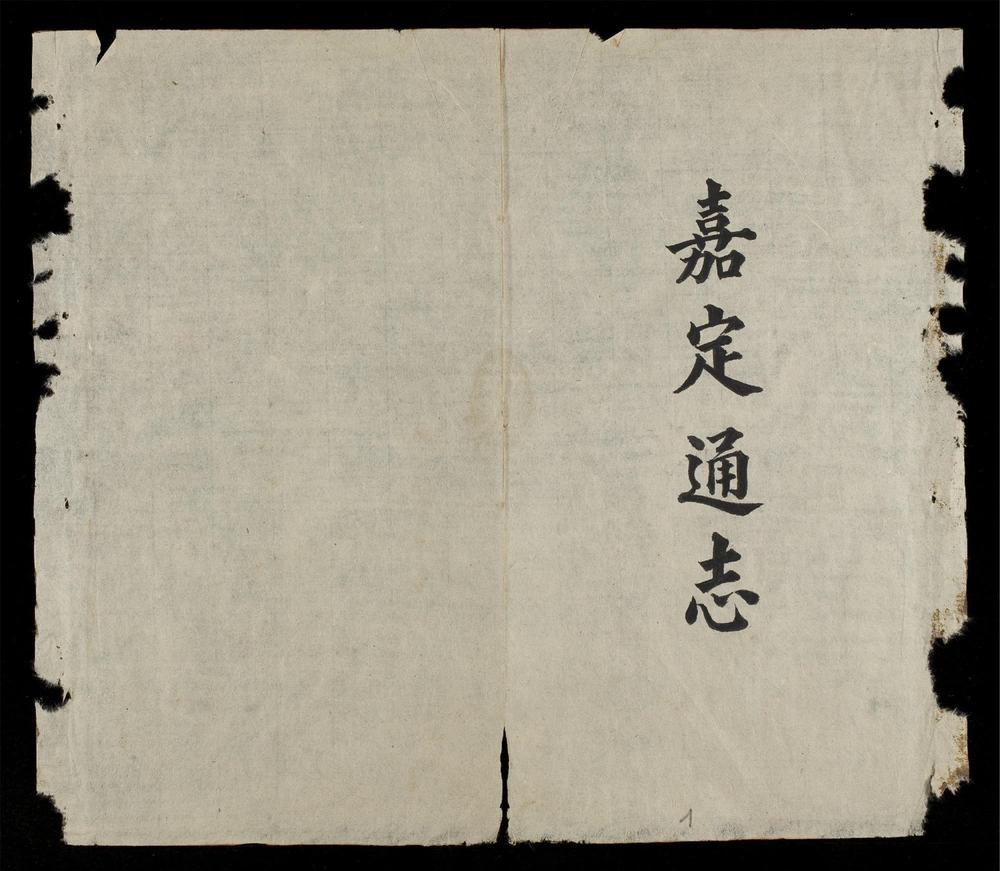 嘉定通志
1